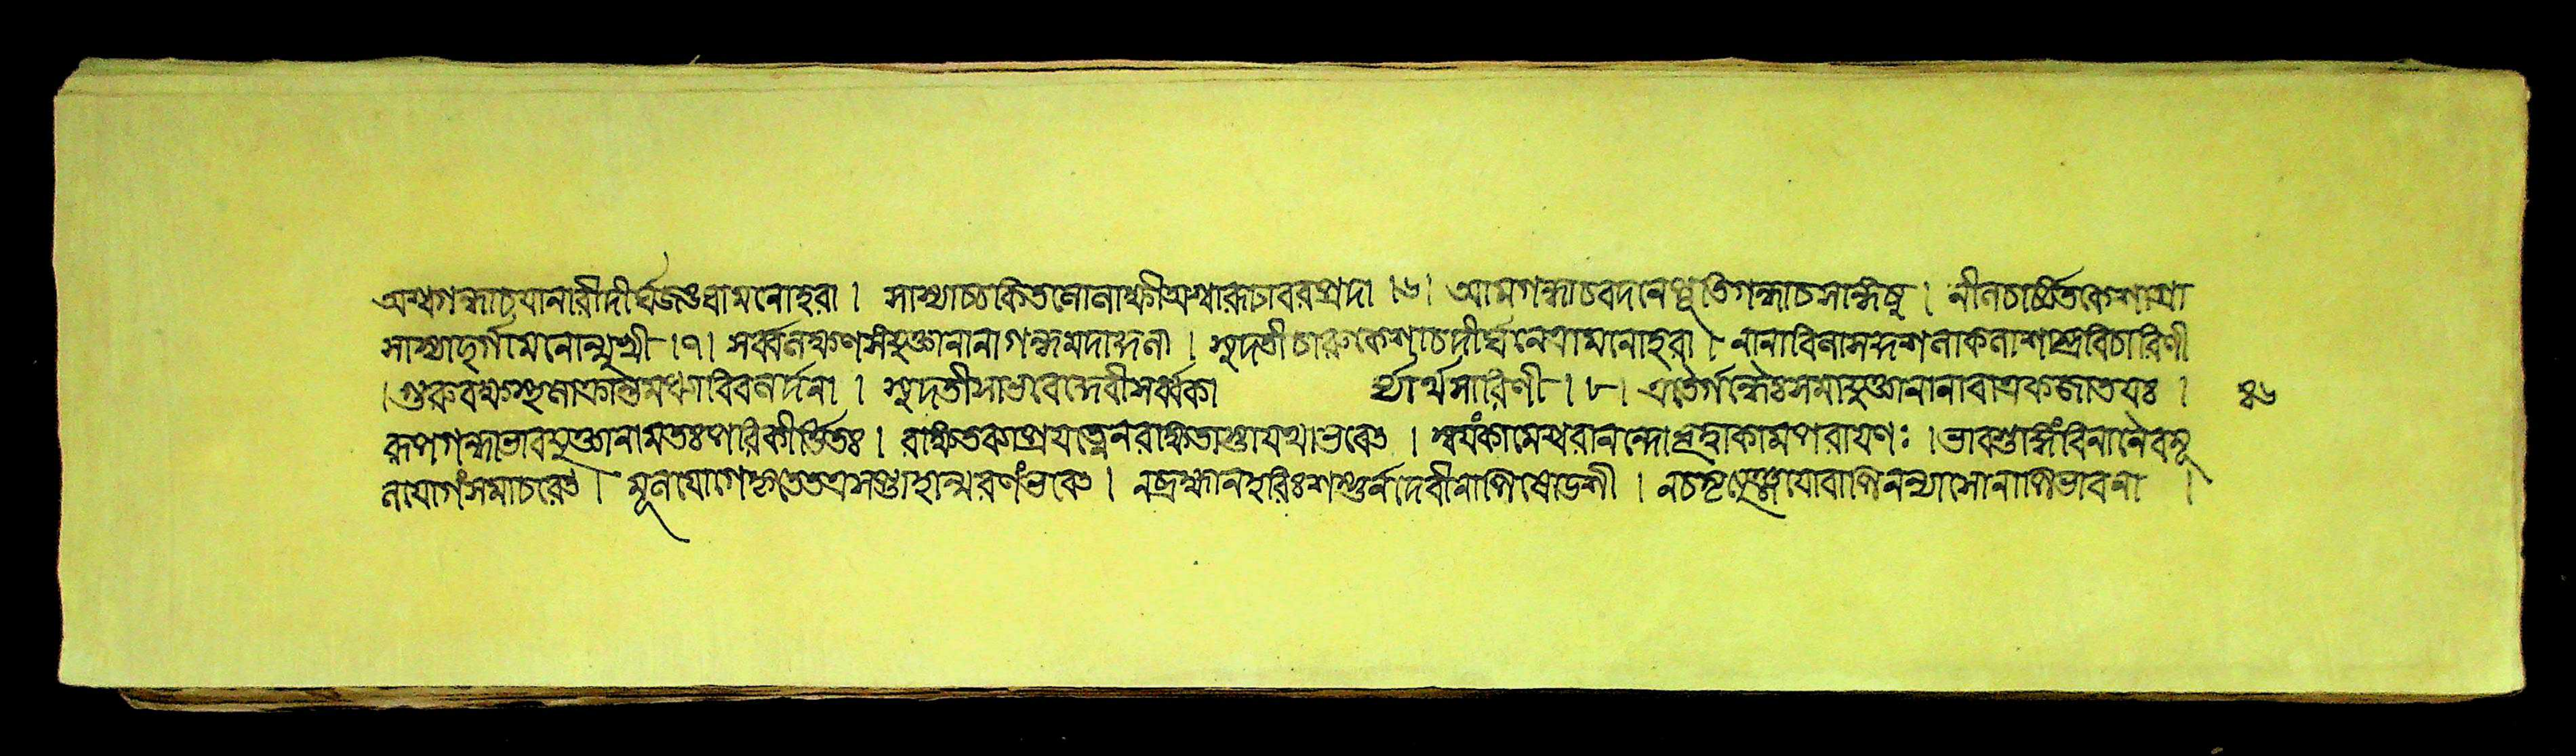 অশ্বগন্ধাচযানারীদীর্ঘজঙঘামনোহরা । সাশ্বাচচকিতলোলাক্ষীঅশ্বারূঢাবরপ্রদা ।৬। আমগন্ধাচবদনেপূতিগন্ধাচসন্ধিষু । নীলচার্চ্চিতকেশাগ্রা
সাশ্বাদুর্গামনোন্মুখী ।৭। সর্ব্বলক্ষণসংযুক্তানানাগন্ধমদাদ্দলা । সুদতীচারুকেশাচদীর্ঘনেত্রামনোহরা । নানাবিলাসদ্দশলাকলাশাস্ত্রবিচারিণী
।গুরুবক্ষস্থলাক্রান্তমধ্যাবিবলর্দ্দলা । সুদতীসাভবেদ্দেবীসর্ব্বকা র্য্যার্থসারিণী । ৮। এতৈর্গন্ধৈঃসমাযুক্তানানাবাত্রকজাতযঃ । ৪৬
রূপগন্ধাভাবযুক্তানামতঃপরিকীর্ত্তিতঃ । রক্ষিতব্যাপ্রযত্নেনরক্ষিতাস্তাযথাভবেৎ । স্বযংকামেশ্বরানন্দোব্রহ্মাকামপরাযণঃ । ভাবশুদ্ধিংবিনানৈবমূ
লাযাগংসমাচরেৎ । মূলযোগেকৃতেতত্রসপ্তাহান্মরণংভবেৎ । নব্রহ্মানহরিঃশম্ভুর্নদেবীনাপিষোডশী । নচ যোবাপিনন্যাসোনাপিভাবনা ।